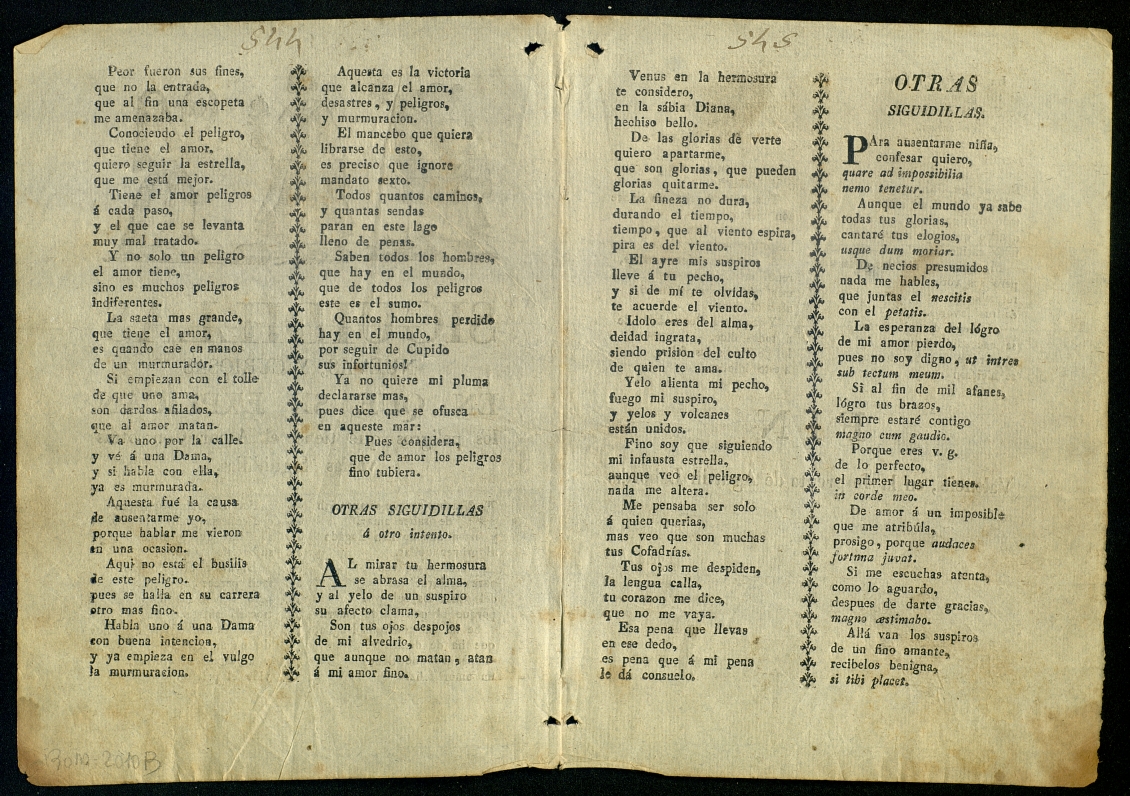 544
Peor fueron sus fines,
que no la entrada,
que al fin una escopeta
me amenazaba.
Conociendo el peligro,
que tiene el amor.
quiero seguir la estrella,
que me está mejor.
Tiene el amor peligros
á cada paso,
y el que cae se levanta
muy mal tratado.
Y no solo un peligro
el amor tiene,
sino es muchos peligros
indiferentes.
La saeta mas grande,
que tiene el amor,
es quando cae en manos
de un murmurador.
Si empiezan con el tolle
de que uno ama,
son dardos afilados,
que al amor matan.
Va uno por la calle.
y vé á una Dama,
y si habla con ella,
ya es murmurada.
Aquesta fué la causa
de ausentarme yo,
porque hablar me vieron
en una ocasion.
Aqui no está el busilis
de este peligro.
pues se halla en su carrera
otro mas fino.
Habla uno á una Dama
con buena intencion,
y ya empieza en el vulgo
la murmuracion.
Aquesta es la victoria
que alcanza el amor,
desastres, y peligros,
y murmuracion.
El mancebo que quiera
librarse de esto,
es preciso que ignore
mandato sexto.
Todos quantos caminos,
y quantas sendas
paran en este lago
lleno de penas.
Saben todos los hombres,
que hay en el mundo,
que de todos los peligros
este es el sumo.
Quantos hombres perdido
hay en el mundo,
por seguir de Cupido
sus infortunios!
Ya no quiere mi pluma
declararse mas,
pues dice que se ofusca
en aqueste mar:
Pues considera,
que de amor los peligros
fino tubiera.
OTRAS SIGUIDILLAS
á otro intento.
AL mirar tu hermosura
se abrasa el alma,
y al yelo de un suspiro
su afecto clama,
Son tus ojos despojos
de mi alvedrio,
que aunque no matan, atan
á mi amor fino.
545
Venus en la hermosura
te considero,
en la sábia Diana,
hechiso bello.
De las glorias de verte
quiero apartarme,
que son glorias, que pueden
glorias quitarme.
La fineza no dura,
durando el tiempo,
tiempo, que al viento espira,
pira es del viento.
El ayre mis suspiros
lleve á tu pecho,
y si de mí te olvidas,
te acuerde el viento.
Idolo eres del alma,
deidad ingrata,
siendo prisión del culto
de quien te ama.
Yelo alienta mi pecho,
fuego mi suspiro,
y yelos y volcanes
están unidos.
Fino soy que siguiendo
mi infausta estrella,
aunque veo el peligro,
nada me altera.
Me pensaba ser solo
á quien querias,
mas veo que son muchas
tus Cofadrías.
Tus ojos me despiden,
la lengua calla,
tu corazon me dice,
que no me vaya.
Esa pena que llevas
en ese dedo,
es pena que á mi pena
le dá consuelo.
OTRAS
SIGUIDILLAS.
PAra ausentarme niña,
confesar quiero,
quare ad impossibilia
nemo tenetur.
Aunque el mundo ya sabe
todas tus glorias,
cantaré tus elogios,
usque dum moriar.
De necios presumidos
nada me hables,
que juntas el nescitis
con el petatis.
La esperanza del lógro
de mi amor pierdo,
pues no soy digno, ut intres
sub tectum meum.
Si al fin de mil afanes,
lógro tus brazos,
siempre estaré contigo
magno cum gaudio.
Porque eres v. g.
de lo perfecto,
el primer lugar tienes.
in corde meo.
De amor á un imposible
que me atribúla,
prosigo, porque audaces
fortnna juvat.
Si me escuchas atenta,
como lo aguardo,
despues de darte gracias,
magno æstimabo.
Allá van los suspiros
de un fino amante,
recibelos benigna,
si tibi placet.